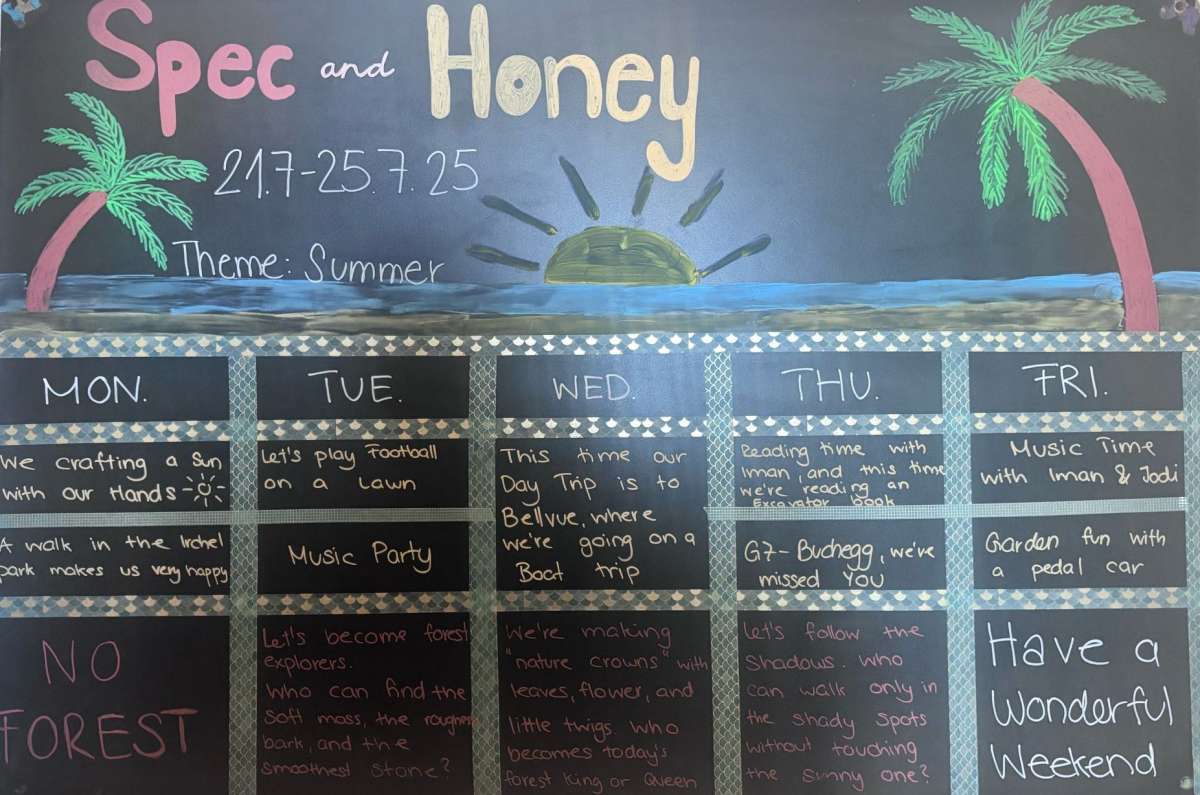 Spec and Honey
21.7-25.7.25
Theme: Summer
MON.
TUE.
WED.
THU.
FRI.
We crafting a Sun
with our Hands
Let's play Football
on a Lawn
This time our
Day Trip is to
Bellvue, where
we're going on a
Boat trip
Reading time with
Iman, and this time
we're reading an
Excavator book
Music Time
with Iman & Jodi
A walk in the Irchel
park makes us very happy
Music Party
G7- Buchegg, we've
missed YOU
Garden fun with
a pedal car
NO
FOREST
Let's become forest
explorers.
Who can find the
soft moss, the roughest
bark, and the
smoothest stone?
We're making
"nature crowns" with
leaves, flower, and
little twigs. who
becomes today's
forest King or Queen
Let's follow the
Shadows. who
can walk only in
the shady spots
without touching
the sunny one?
Have a
Wonderful
Weekend